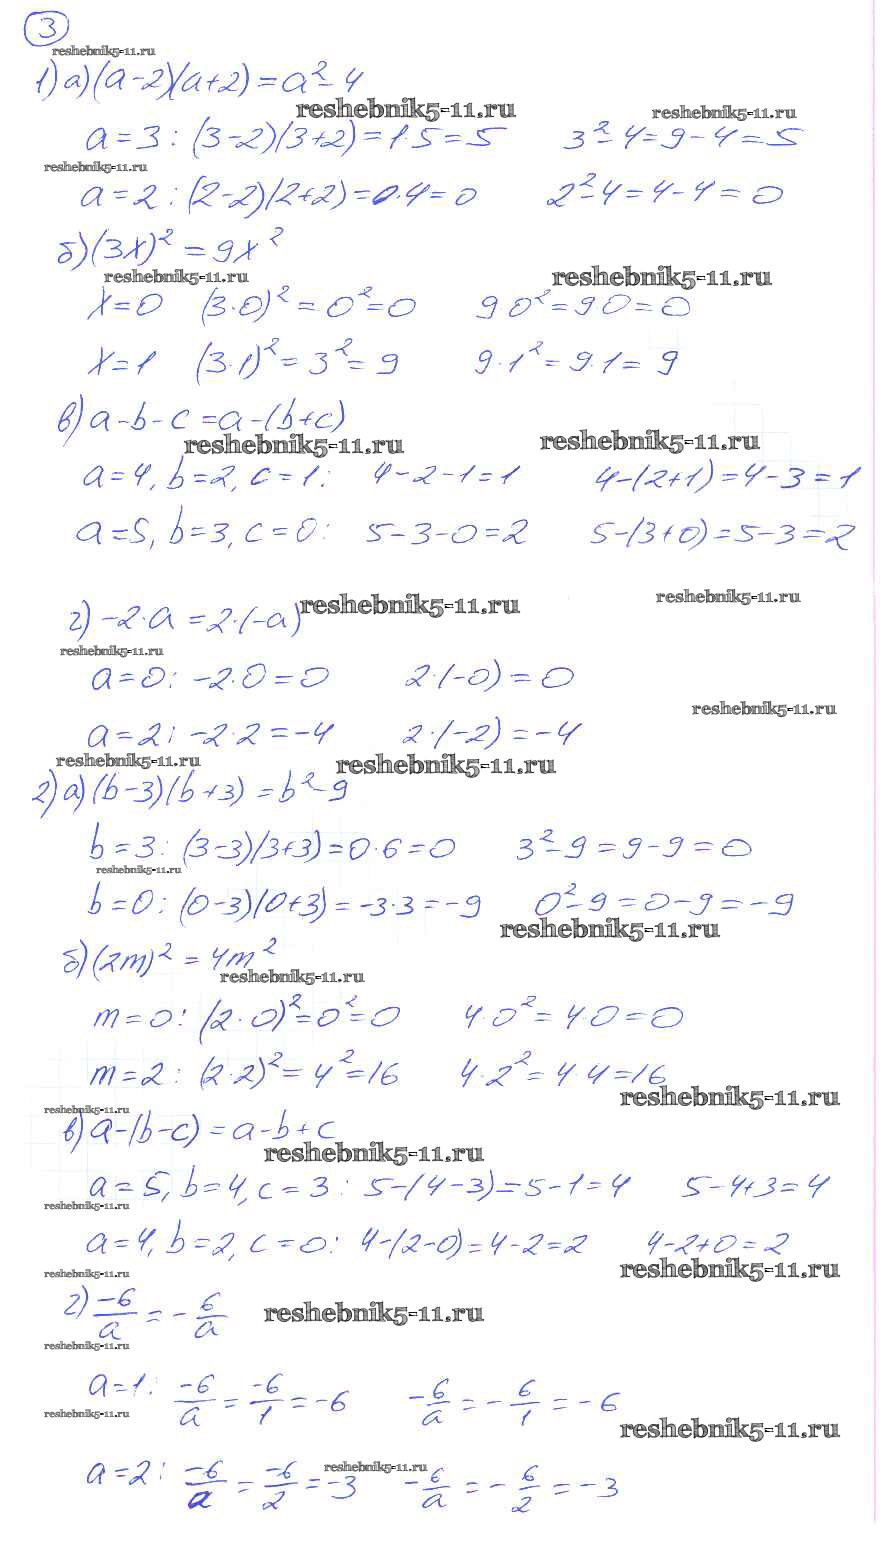 3
reshebnik5-11.ru
1) а) (a-2)(a+2) = a² - 4
reshebnik5-11.ru reshebnik5-11.ru
a = 3 : (3-2)(3+2) = 1·5 = 5 3² - 4 = 9 - 4 = 5
reshebnik5-11.ru
a = 2 : (2-2)(2+2) = 0·4 = 0 2² - 4 = 4 - 4 = 0
б) (3x)² = 9x²
reshebnik5-11.ru reshebnik5-11.ru
x = 0 (3·0)² = 0² = 0 9 0² = 9 0 = 0
x = 1 (3·1)² = 3² = 9 9·1² = 9·1 = 9
в) a - b - c = a - (b+c)
reshebnik5-11.ru reshebnik5-11.ru
a = 4, b = 2, c = 1 : 4 - 2 - 1 = 1 4 - (2+1) = 4 - 3 = 1
a = 5, b = 3, c = 0 : 5 - 3 - 0 = 2 5 - (3+0) = 5 - 3 = 2
г) -2·a = 2·(-a) reshebnik5-11.ru reshebnik5-11.ru
reshebnik5-11.ru
a = 0 : -2·0 = 0 2·(-0) = 0
reshebnik5-11.ru
a = 2 : -2·2 = -4 2·(-2) = -4
reshebnik5-11.ru reshebnik5-11.ru
2) а) (b-3)(b+3) = b² - 9
b = 3 : (3-3)(3+3) = 0·6 = 0 3² - 9 = 9 - 9 = 0
reshebnik5-11.ru
b = 0 : (0-3)(0+3) = -3·3 = -9 0² - 9 = 0 - 9 = -9
reshebnik5-11.ru
б) (2m)² = 4m²
reshebnik5-11.ru
m = 0 : (2·0)² = 0² = 0 4·0² = 4·0 = 0
m = 2 : (2·2)² = 4² = 16 4·2² = 4·4 = 16
reshebnik5-11.ru
reshebnik5-11.ru
в) a - (b-c) = a - b + c
reshebnik5-11.ru
a = 5, b = 4, c = 3 : 5 - (4-3) = 5 - 1 = 4 5 - 4 + 3 = 4
reshebnik5-11.ru
a = 4, b = 2, c = 0 : 4 - (2-0) = 4 - 2 = 2 4 - 2 + 0 = 2
reshebnik5-11.ru reshebnik5-11.ru
г) -6/a = - 6/a reshebnik5-11.ru
reshebnik5-11.ru
a = 1 : -6/a = -6/1 = -6 -6/a = - 6/1 = -6
reshebnik5-11.ru reshebnik5-11.ru
reshebnik5-11.ru
a = 2 : -6/a = -6/2 = -3 -6/a = - 6/2 = -3